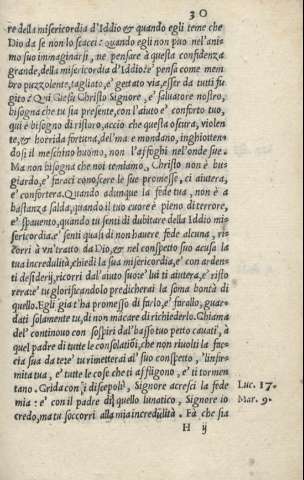 30
re della misericordia d'Iddio & quando egli teme che
Dio da se non lo scacci: quando egli non puo nel'ani
mo suo immaginarsi, ne pensare à questa confidenza
grande, della misericordia d'Iddio: e' pensa come mem
bro puzzolente, tagliato, e' gettato via, esser da tutti fu
gito: Qui Giesu Christo Signore, e' salvatore nostro,
bisogna che tu sia presente, con l'aiuto e' conforto tuo,
qui è bisogno di ristoro, accio che questa oscura, violen
te, & horrida fortuna, del'ma e mondano, inghiotten-
dosi il meschino huomo, non l'affoghi nel'onde sue.
Ma non bisogna che noi temiamo, Christo non è bu-
giardo, e' faraci conoscere le sue promesse, ci aiutera,
e' confortera. Quando adunque la fede tua, non è a
bastanza salda, quando il tuo cuore è pieno di terrore,
e' spavento, quando tu senti di dubitare della Iddio mi-
sericordia: e' senti quasi di non havere fede alcuna, ri-
corri à vn tratto da Dio, & nel conspetto suo acusa la
tua incredulità, chiedi la sua misericordia, e' con arden-
ti desiderij, ricorri dal'aiuto suo: e' lui ti aiutera, e' risto
rera: e' tu glorificandolo predicherai la soma bontà di
quello. Egli gia t'ha promesso di farlo, e' farallo, guar-
dati solamente tu, di non mācare di richiederlo. Chiama
del' continouo con sospiri dal' basso tuo petto cauati, à
quel padre di tutte le consolatiōi, che non riuolti la fac-
cia sua da te: e' tu rimetterai al' suo conspetto, l'infir-
mita tua, e' tutte le cose che ti affligono, e' ti tormen
tano. Grida con i discepoli, Signore acresci la fede
mia: e' con il padre di quello lunatico, Signore io
credo, ma tu soccorri alla mia incredulità. Fà che sia
Luc. 17.
Mar. 9.
H ij